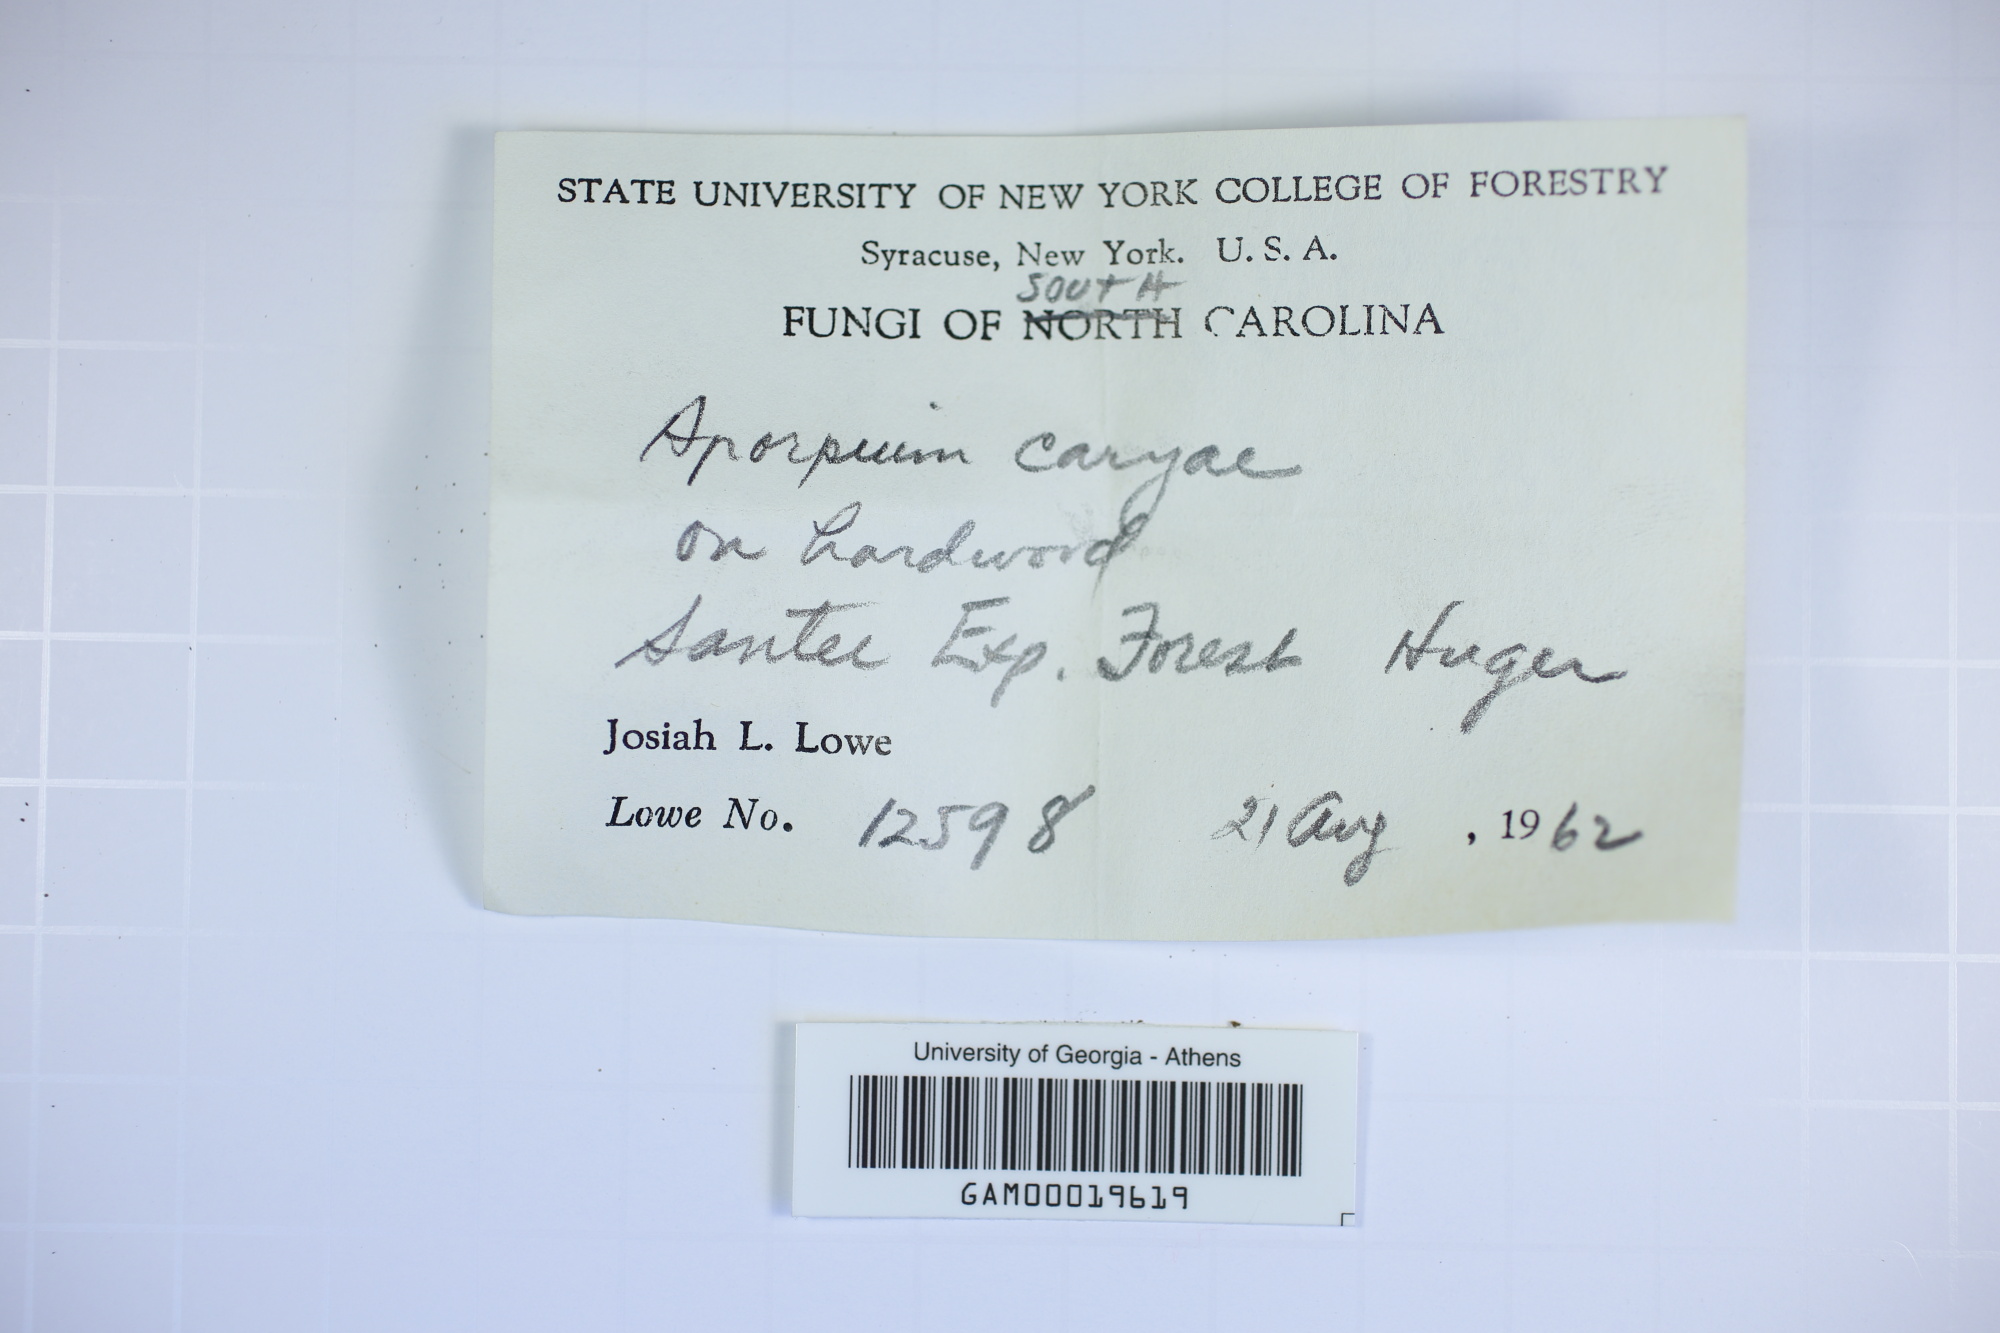 STATE UNIVERSITY OF NEW YORK COLLEGE OF FORESTRY
Syracuse, New York. U. S. A.
SOUTH
FUNGI OF NORTH CAROLINA
Aporpium caryae
on hardwood
Santee Exp. Forest Huger
Josiah L. Lowe
Lowe No. 12598 21 Aug , 1962
University of Georgia - Athens
GAM00019619